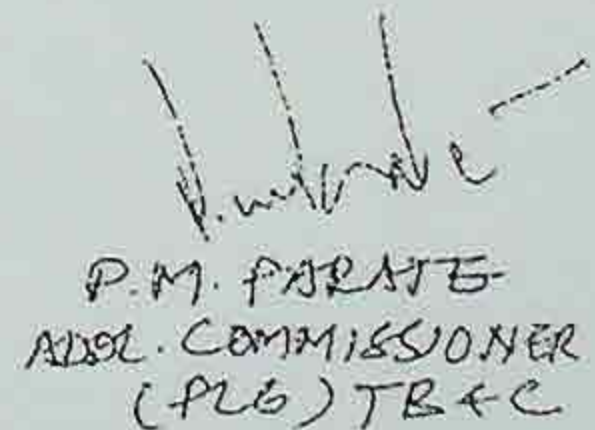 P.M. PARATE
ADDL. COMMISSIONER
(PLG) TB & C